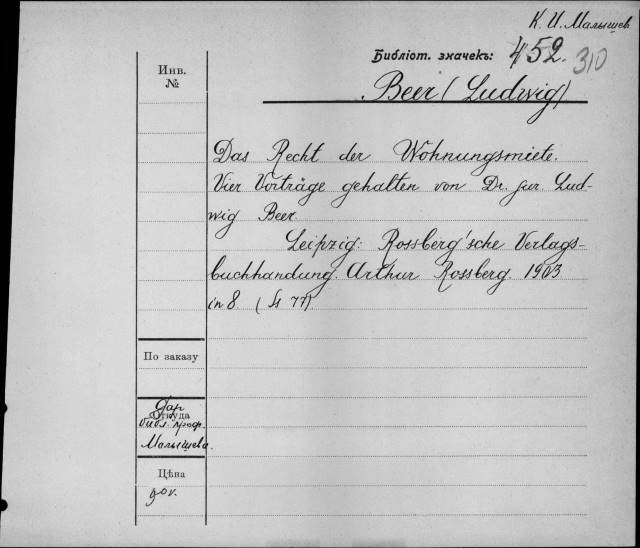 К. И. Малышев
Библіот. значекъ: 452. 310
Инв.
№
Beer (Ludwig)
Das Recht der Wohnungsmiete.
Vier Vorträge gehalten von Dr. jur. Lud-
wig Beer.
Leipzig: Rossberg'sche Verlags-
buchhandung. Arthur Rossberg. 1903
in 8 (77).
По заказу
Дар
Откуда
библ. проф.
Малышева.
Цѣна